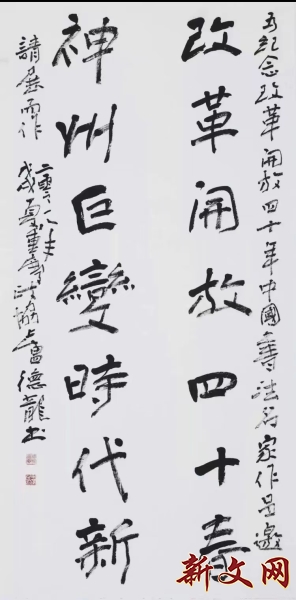 为纪念改革开放四十年中国书法名家作品邀
改革開放四十春
神州巨變時代新
請展而作
二零一八年
戊戌夏重慶 盧德龍书
新文网